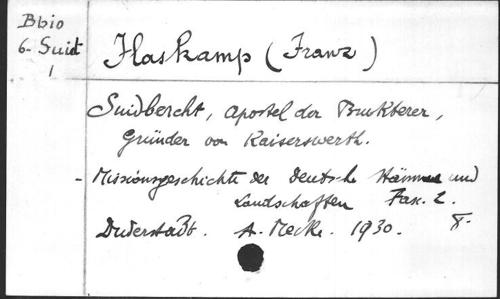 Bbio
6- Suid
1
Flaskamp (Franz)
Suidbercht, Apostel der Brukterer,
Gründer von Kaiserswerth.
- Missionsgeschichte der deutsche Stämme und
Landschaften Fasc. 2.
Duderstadt. A. Mecke. 1930. 8.